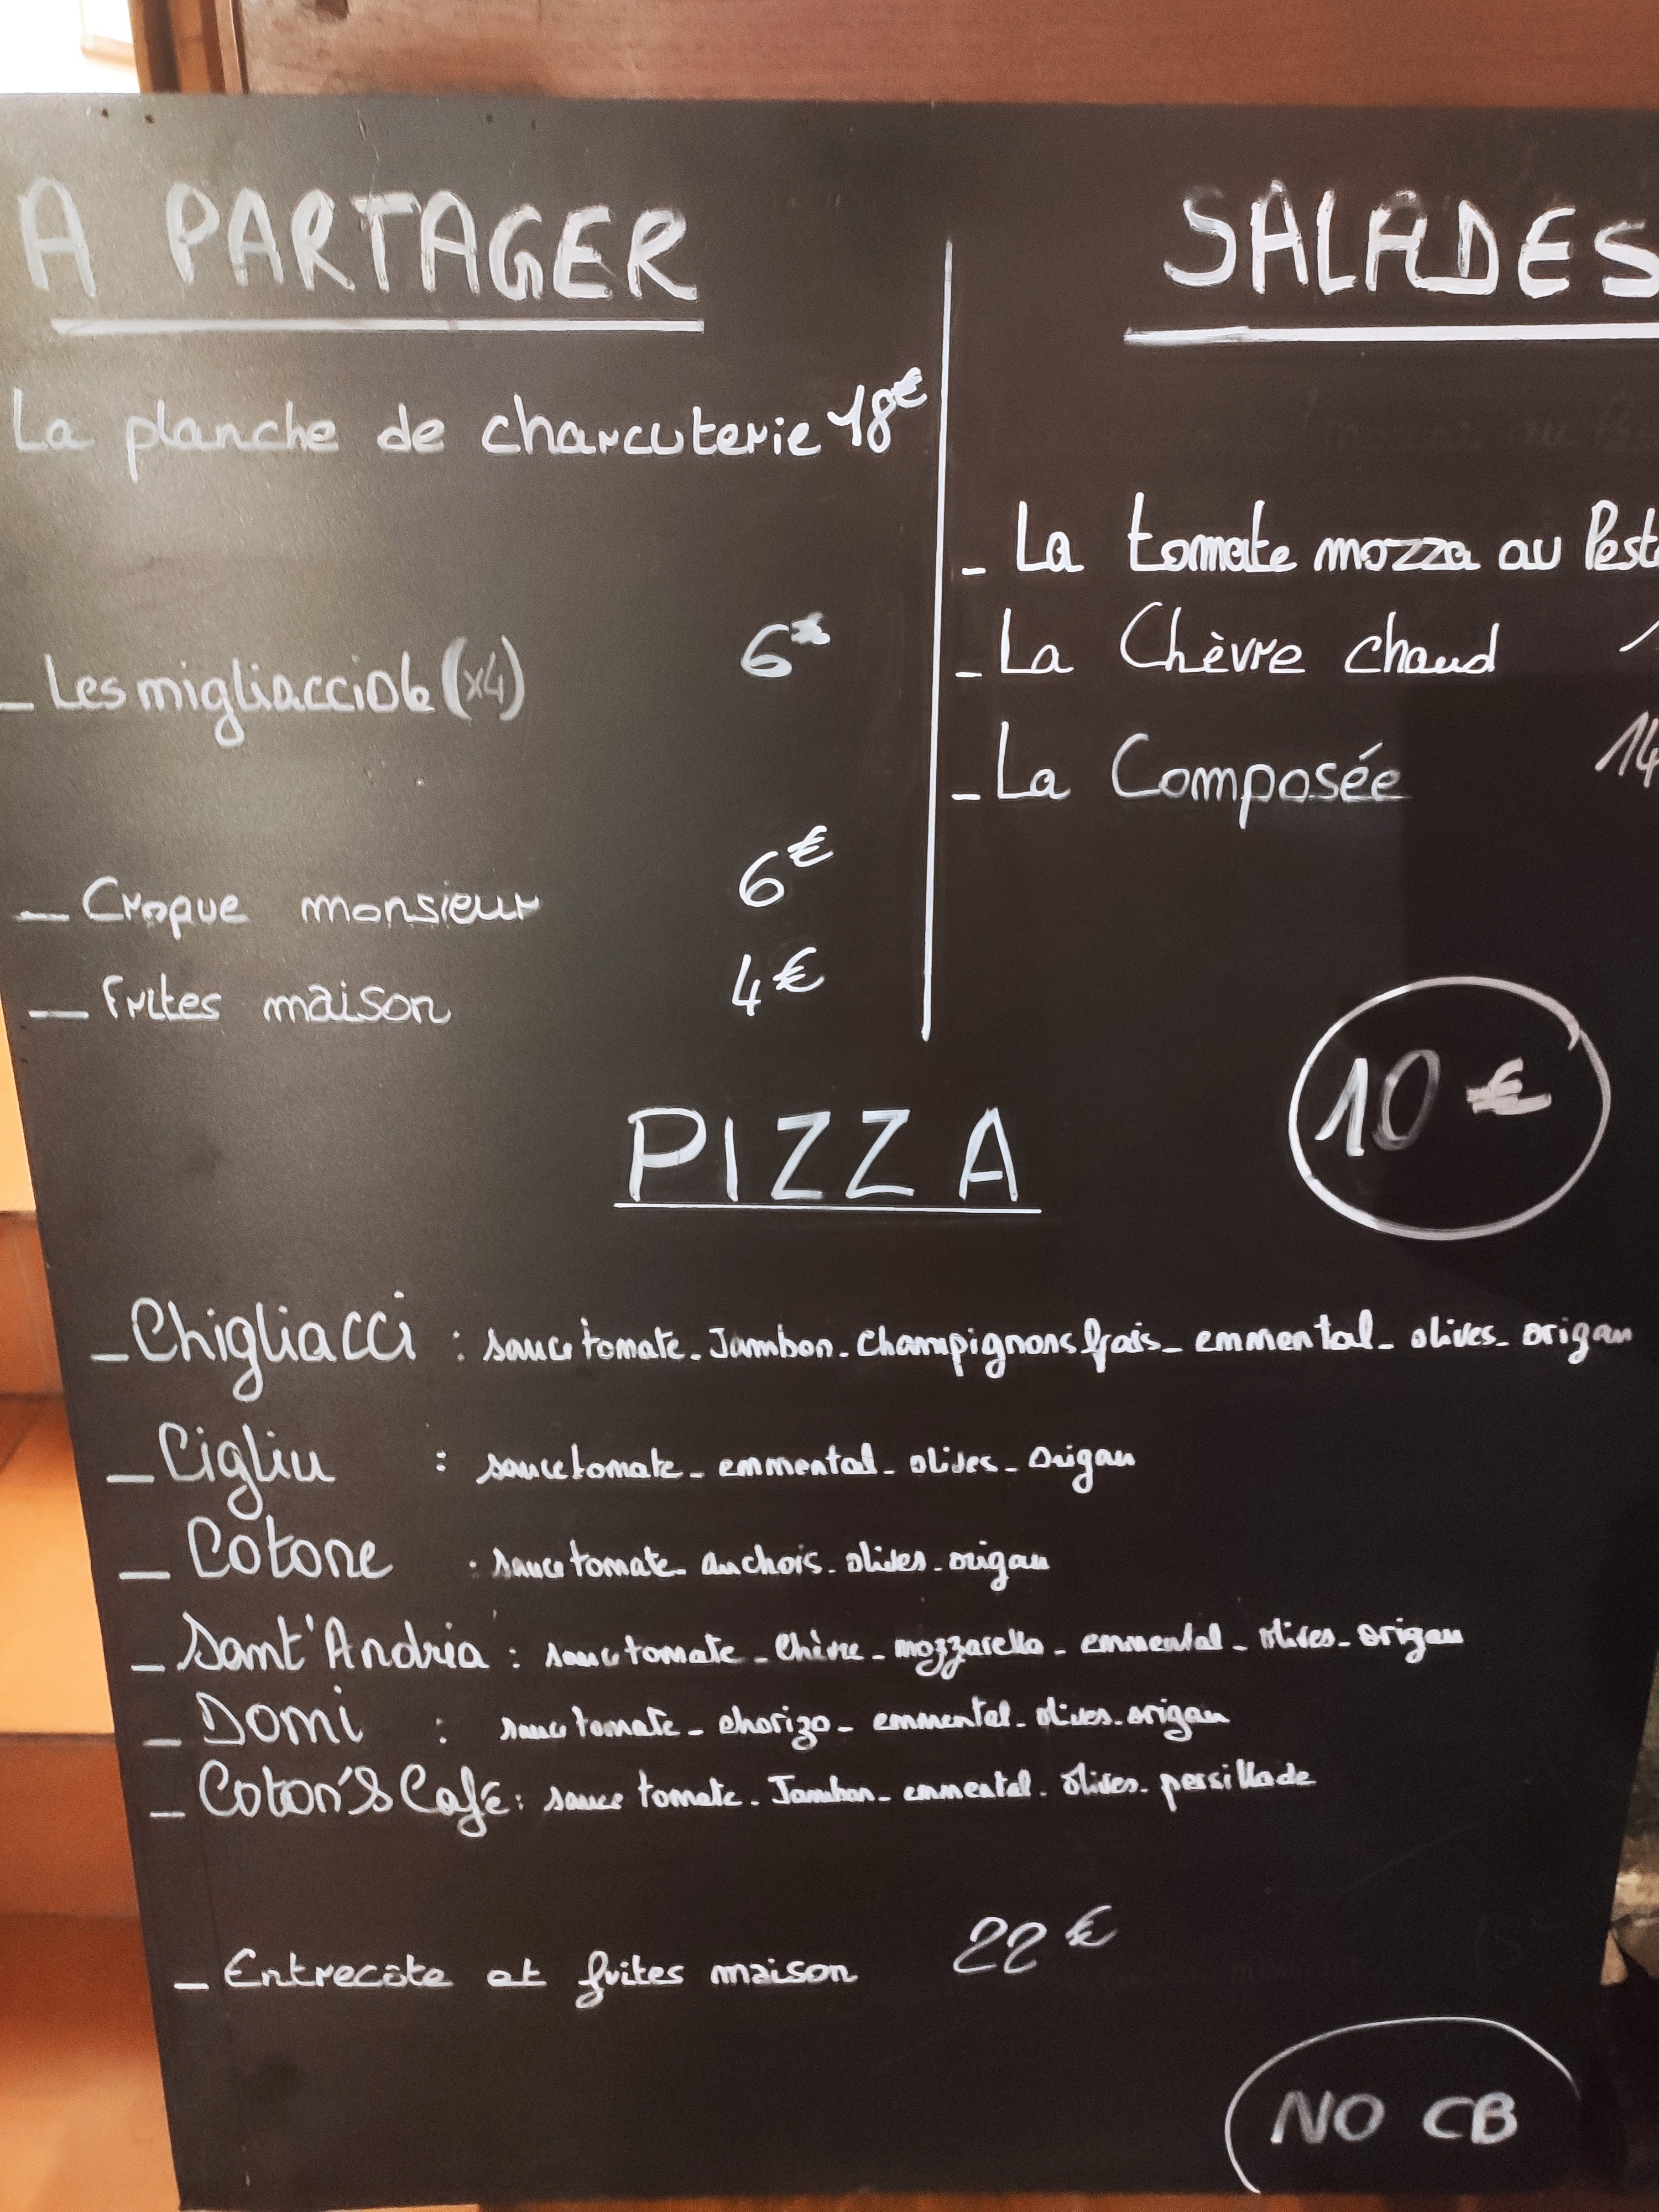 A PARTAGER
La planche de charcuterie 18€
_ Les migliacciole (x4) 6€
_ Croque monsieur 6€
_ Frites maison 4€
SALADES
_ La tomate mozza au Pest
_ La Chèvre chaud 1
_ La Composée 14
PIZZA
10 €
_ Chigliacci : sauce tomate - Jambon - Champignons frais - emmental - olives - origan
_ Cigliu : sauce tomate - emmental - olives - origan
_ Cotone : sauce tomate - anchois - olives - origan
_ Sant'Andria : sauce tomate - Chèvre - mozzarella - emmental - olives - origan
_ Domi : sauce tomate - chorizo - emmental - olives - origan
_ Coton'S Café : sauce tomate - Jambon - emmental - olives - persillade
_ Entrecôte et frites maison 22 €
NO CB